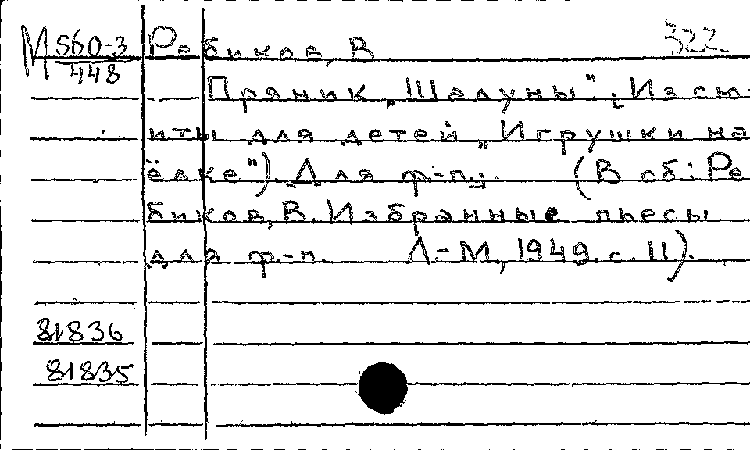 М 560-3 Ребиков, В 322
448
Пряник „Шалуны“; Из сю-
иты для детей „Игрушки на
ёлке“) Для ф-п. (В сб.: Ре
биков, В. Избранные пьесы
для ф.-п. Л.-М., 1949. с. 11).
81836
81835